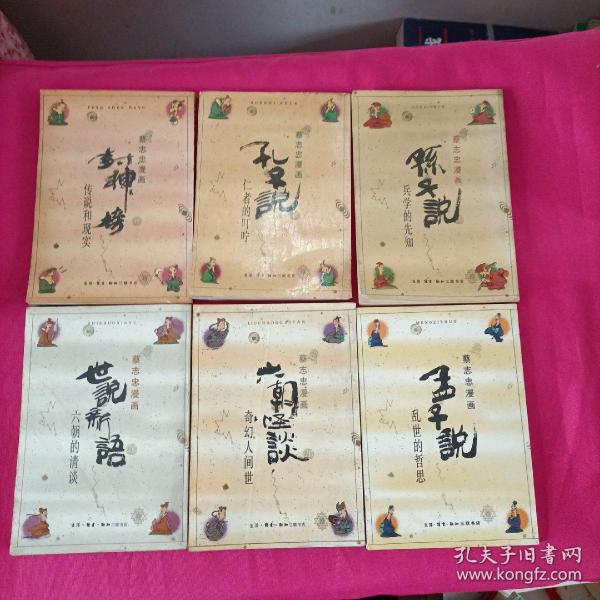 FENG SHEN BANG
蔡志忠漫画
封神榜
传说和现实
生活·讀書·新知三联书店
蔡志忠漫画
孔子說
仁者的叮咛
生活·讀書·新知三联书店
蔡志忠漫画
孫子說
兵学的先知
生活·讀書·新知三联书店
蔡志忠漫画
世說新語
六朝的清谈
生活·讀書·新知三联书店
蔡志忠漫画
六朝怪談
奇幻人间世
生活·讀書·新知三联书店
MENGZISHUO
蔡志忠漫画
孟子說
乱世的哲思
生活·讀書·新知三联书店
孔夫子旧书网
www.kongfz.com